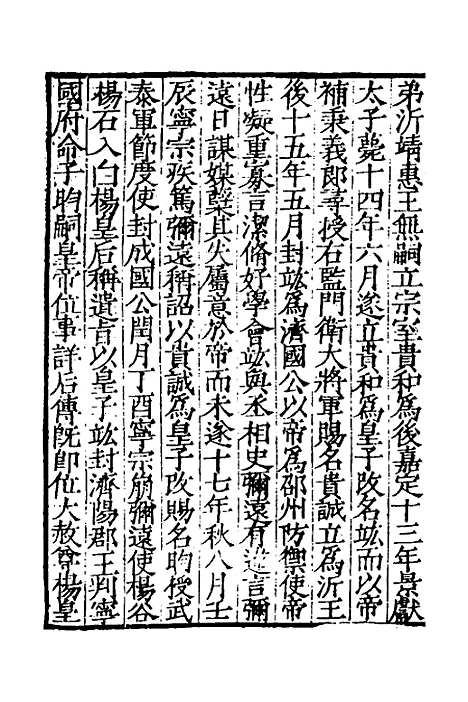 弟沂靖惠王無嗣立宗室貴和爲後嘉定十三年景獻
太子薨十四年六月遂立貴和爲皇子攺名竑而以帝
補秉義郎尋授右監門衛大將軍賜名貴誠立爲沂王
後十五年五月封竑爲濟國公以帝爲邵州防禦使帝
性凝重寡言潔脩好學會竑與丞相史彌遠有違言彌
遠日謀媒糵其失屬意於帝而未遂十七年秋八月壬
辰寧宗疾篤彌遠稱詔以貴誠爲皇子攺賜名昀授武
泰軍節度使封成國公閏月丁酉寧宗崩彌遠使楊谷
楊石入白楊皇后稱遺旨以皇子竑封濟陽郡王判寧
國府命子昀嗣皇帝位事詳后傳旣即位大赦尊楊皇